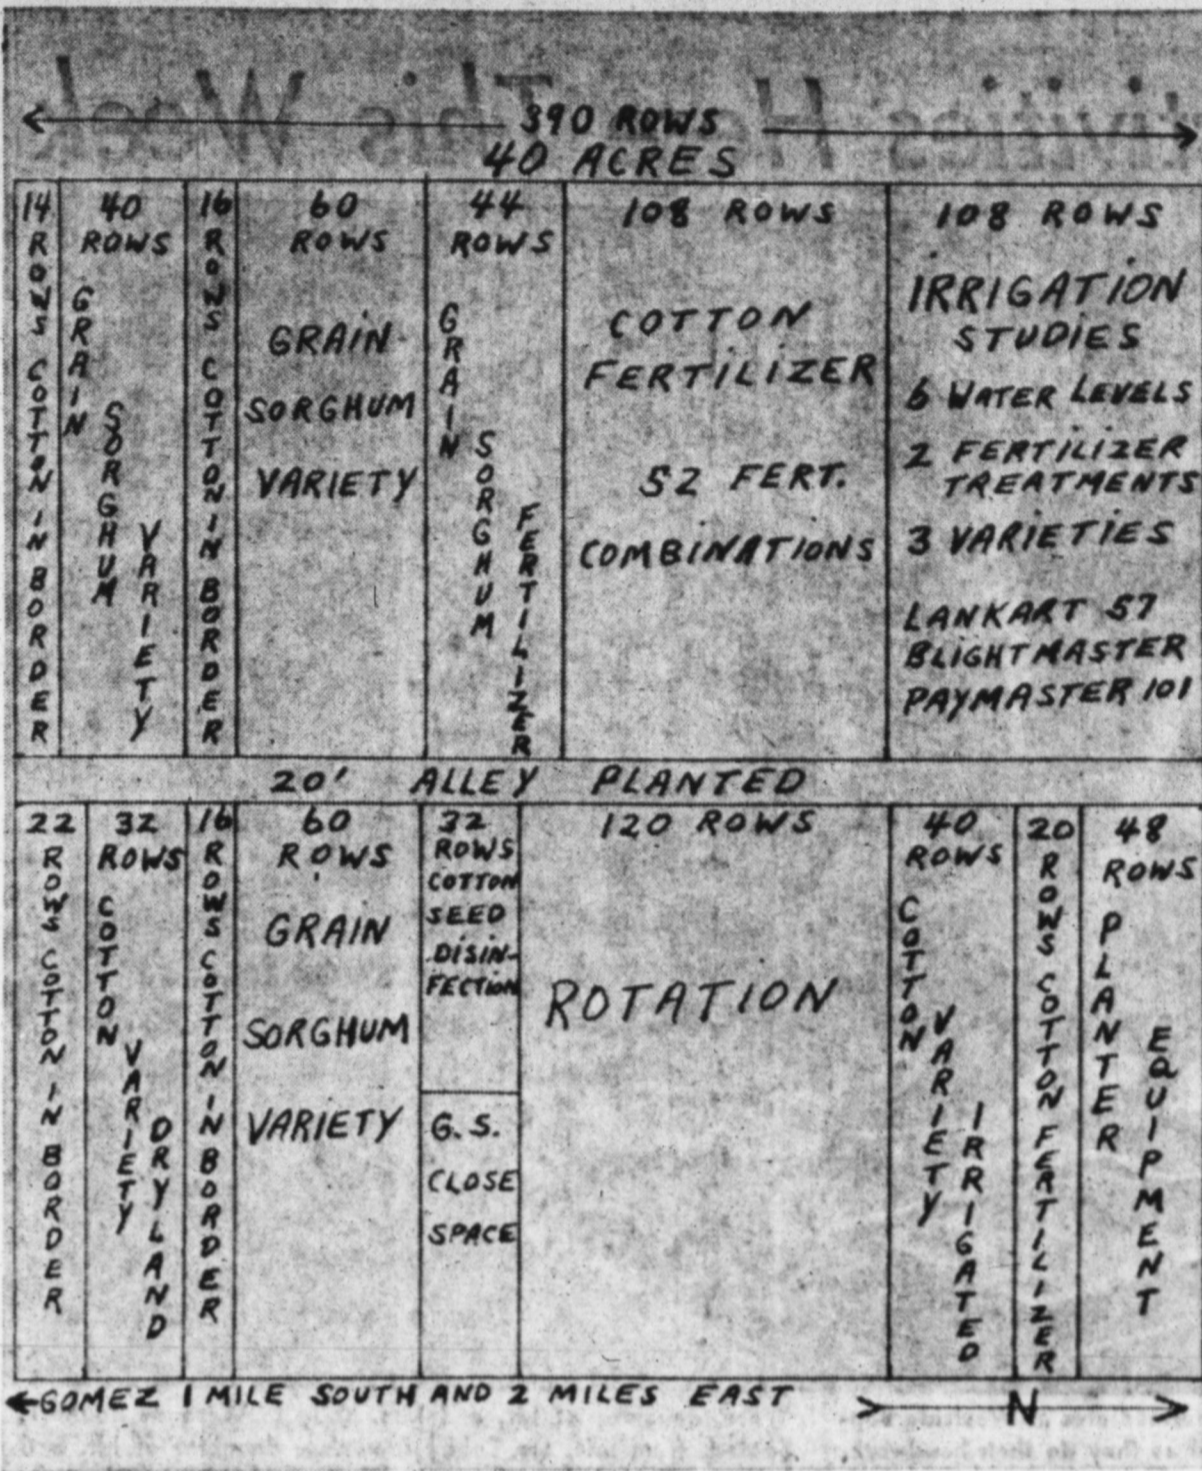 390 ROWS
40 ACRES
14 ROWS COTTON IN BORDER
40 ROWS
GRAIN SORGHUM VARIETY
16 ROWS COTTON IN BORDER
60 ROWS
GRAIN
SORGHUM
VARIETY
44 ROWS
GRAIN SORGHUM FERTILIZER
108 ROWS
COTTON
FERTILIZER
52 FERT.
COMBINATIONS
108 ROWS
IRRIGATION
STUDIES
6 WATER LEVELS
2 FERTILIZER
TREATMENTS
3 VARIETIES
LANKART 57
BLIGHTMASTER
PAYMASTER 101
20' ALLEY PLANTED
22 ROWS COTTON IN BORDER
32 ROWS
COTTON VARIETY DRYLAND
16 ROWS COTTON IN BORDER
60 ROWS
GRAIN
SORGHUM
VARIETY
32
ROWS
COTTON
SEED
DISIN-
FECTION
G.S.
CLOSE
SPACE
120 ROWS
ROTATION
40 ROWS
COTTON VARIETY IRRIGATED
20 ROWS COTTON FERTILIZER
48 ROWS
PLANTER EQUIPMENT
GOMEZ 1 MILE SOUTH AND 2 MILES EAST
N